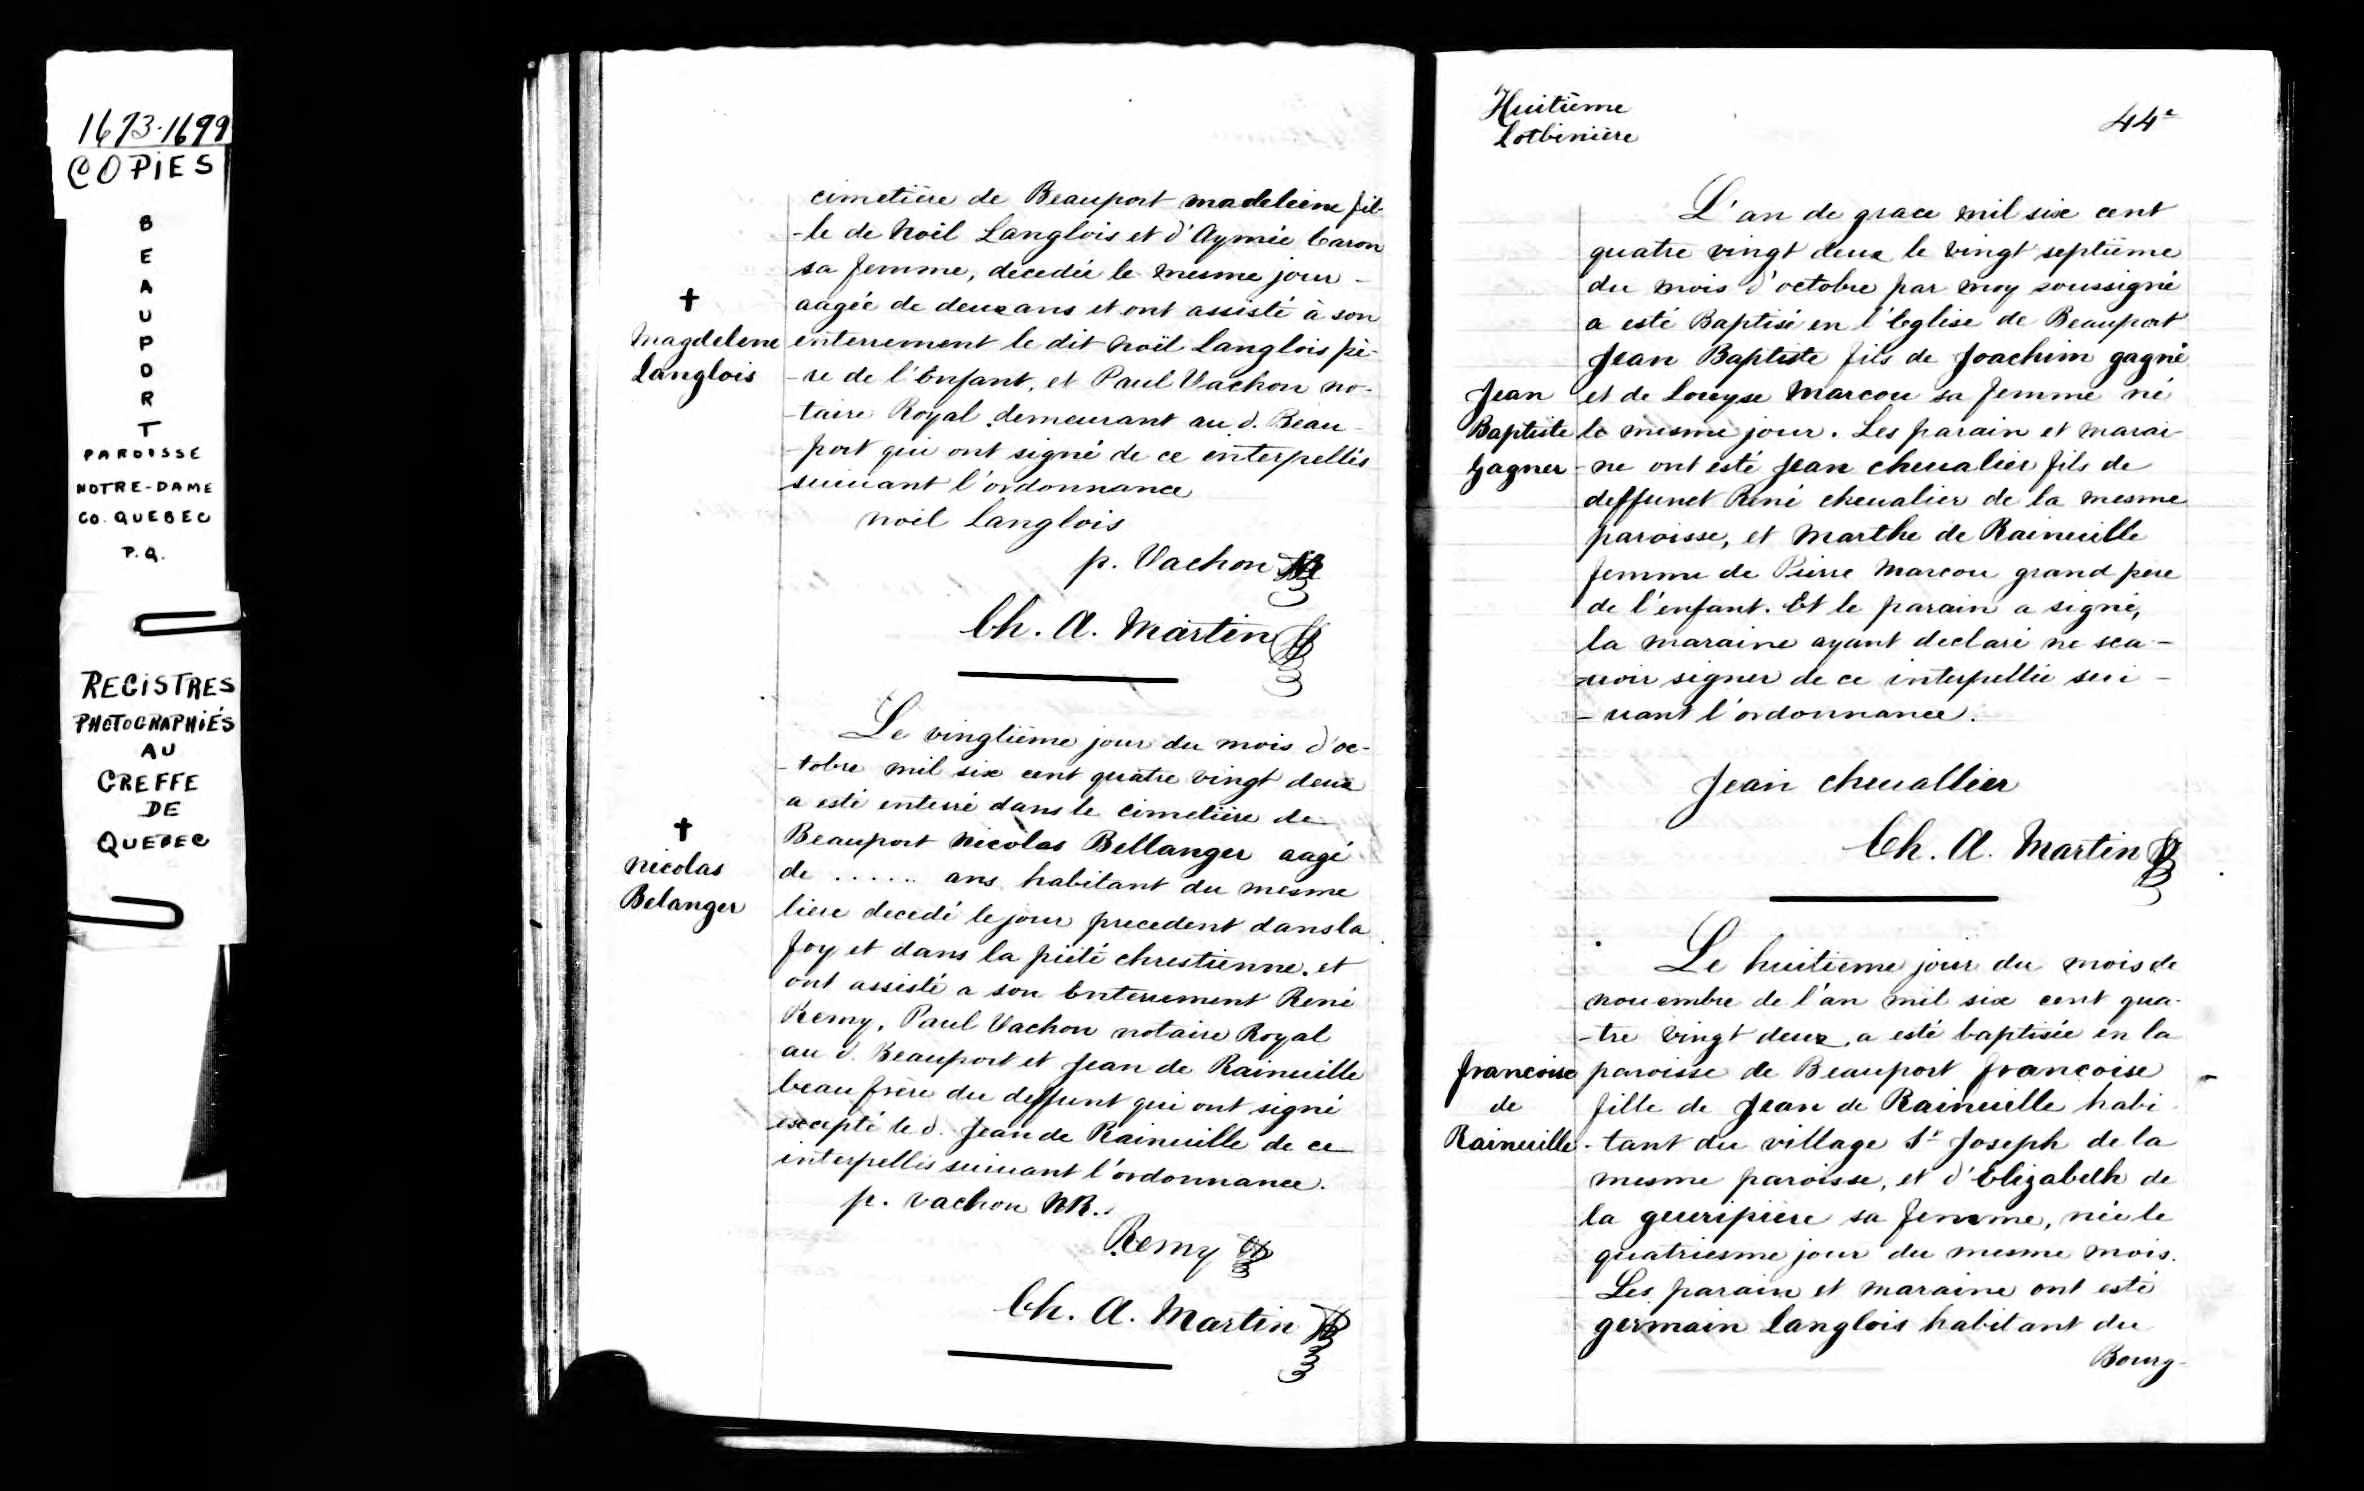 1673-1699
COPIES
B
E
A
U
P
O
R
T
PAROISSE
NOTRE-DAME
CO. QUEBEC
P.Q.
REGISTRES
PHOTOGRAPHIÉS
AU
GREFFE
DE
QUEBEC
cimetière de Beauport madeleine fil-
-le de Noël Langlois et d'Aymée Caron
sa femme, decedée le mesme jour -
aagée de deux ans et ont assisté à son
enterrement le dit Noël Langlois pè-
-re de l'Enfant, et Paul Vachon no-
-taire Royal demeurant au d. Beau-
-port qui ont signé de ce interpellés
suiuant l'ordonnance
noël Langlois
p. Vachon NR
Ch. A. Martin
†
Magdelene
Langlois
Le vingtième jour du mois d'oc-
-tobre mil six cent quatre vingt deux
a esté enterré dans le cimetière de
Beauport Nicolas Bellanger aagé
de ...... ans habitant du mesme
lieu decedé le jour precedent dans la
foy et dans la piété chrestienne. et
ont assisté a son Enterrement René
Remy, Paul Vachon notaire Royal
au d. Beauport et Jean de Raineuille
beau frère du deffunt qui ont signé
excepté le d. Jean de Raineuille de ce
interpellés suiuant l'ordonnance.
p. vachon NR.
Remy
Ch. A. Martin
†
Nicolas
Belanger
Huitième
Lotbinière
44e
L'an de grace mil six cent
quatre vingt deux le vingt septième
du mois d'octobre par moy soussigné
a esté Baptisé en l'Eglise de Beauport
Jean Baptiste fils de Joachim gagné
et de Louyse Marcou sa femme né
le mesme jour. Les parain et marai-
-ne ont esté Jean cheualier fils de
deffunct René cheualier de la mesme
paroisse, et Marthe de Raineuille
femme de Pierre Marcou grand pere
de l'enfant. Et le parain a signé,
la maraine ayant declaré ne sca-
-uoir signer de ce interpellée sui-
-uant l'ordonnance.
Jean cheuallier
Ch. A. Martin
Jean
Baptiste
Gagner
Le huitieme jour du mois de
nouembre de l'an mil six cent qua-
-tre vingt deux, a esté baptisée en la
paroisse de Beauport françoise
fille de Jean de Raineuille habi-
-tant du village St Joseph de la
mesme paroisse, et d'Elizabeth de
la gueripiere sa femme, née le
quatriesme jour du mesme mois.
Les parain et maraine ont esté
germain Langlois habitant du
Bourg-
francoise
de
Raineuille